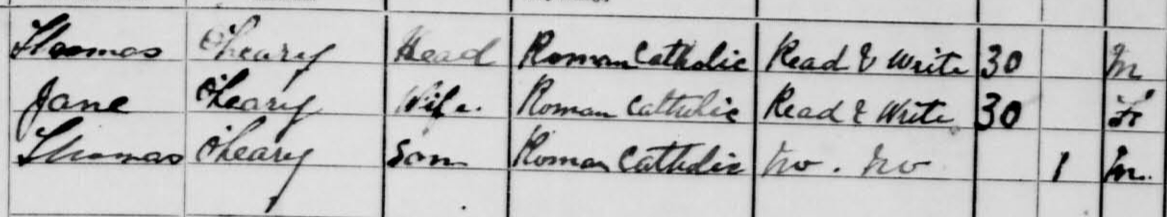 Thomas O'Leary Head Roman Catholic Read & Write 30 M
Jane O'Leary Wife. Roman Catholic Read & Write 30 F
Thomas O'Leary Son Roman Catholic No. No 1 M.